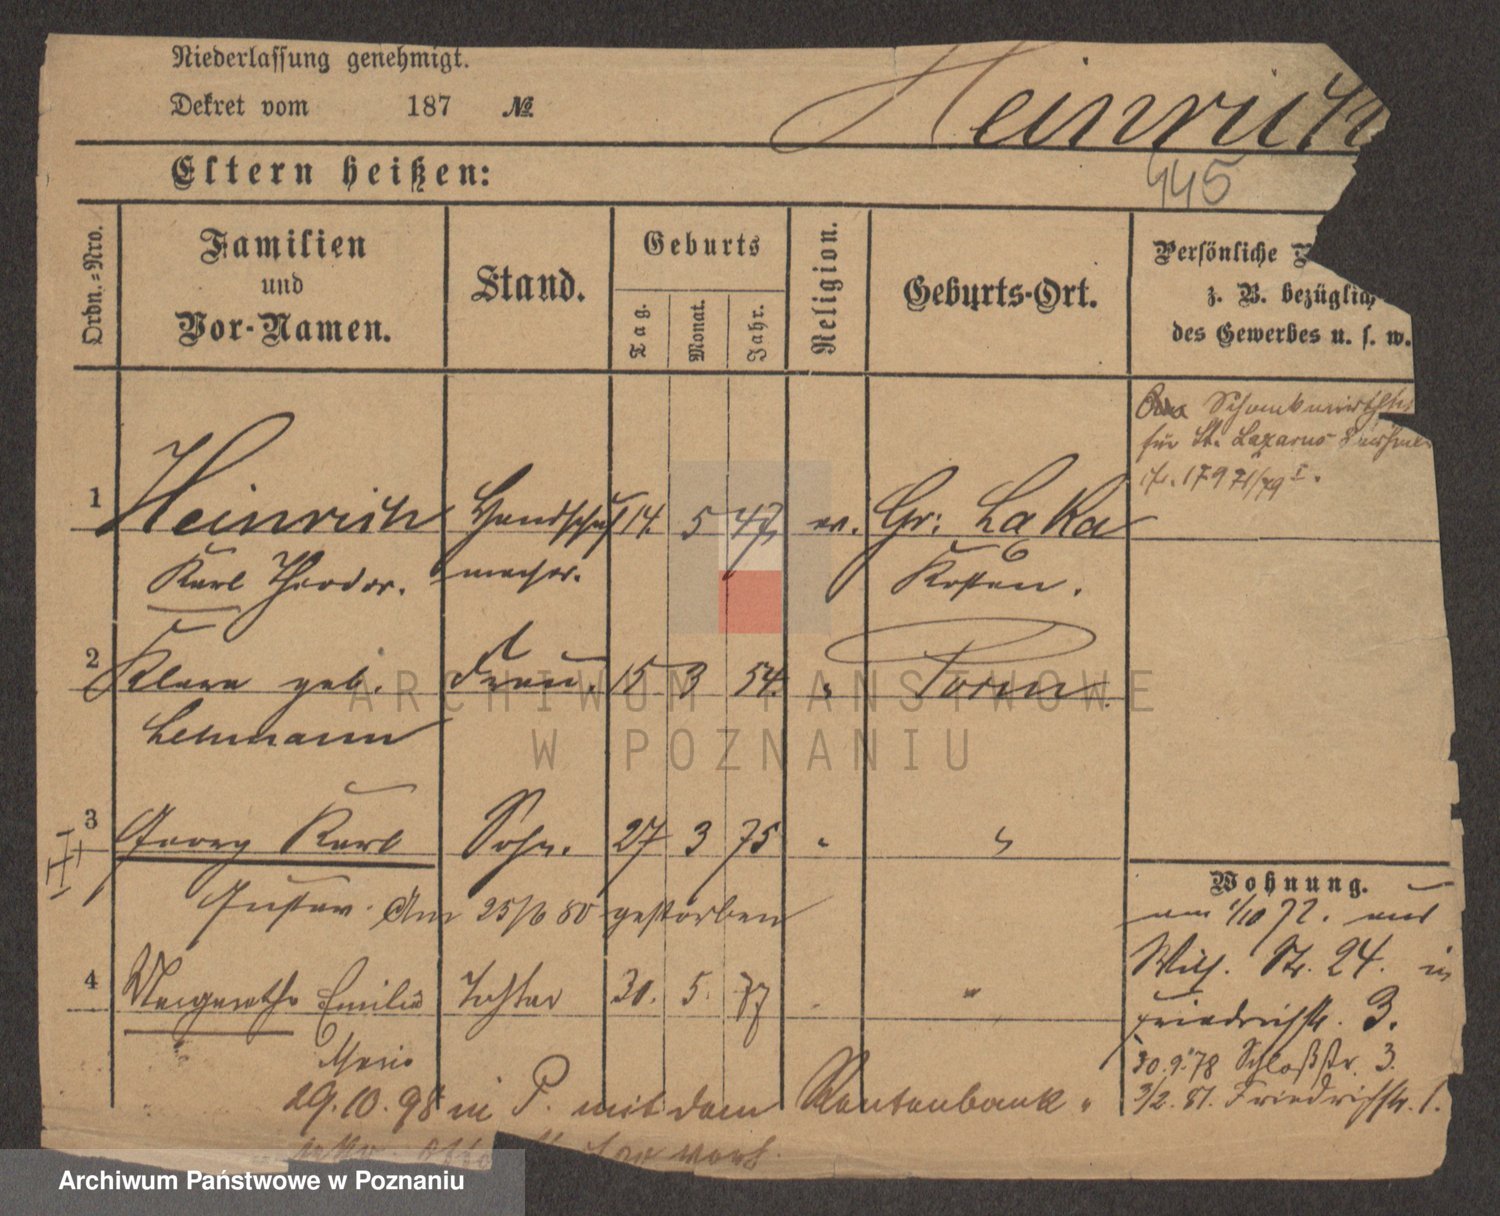 Niederlassung genehmigt.
Dekret vom 187 №
Heinrich
445
Eltern heißen:
Ordn.-Nro.
Familien
und
Vor-Namen.
Stand.
Geburts
Tag.
Monat.
Jahr.
Religion.
Geburts-Ort.
Persönliche
z. B. bezüglich
des Gewerbes u. s. w.
für St. Lazarus
1 Heinrich Handschuh 14. 5 47 ev. Gr: Laka
Karl Theodor. macher. Kosten.
2 Klara geb. Frau. 15 3 54. " Posen
Lehmann
3 Georg Karl Sohn. 27 3 75 " "
Gustav. Am 25/6 80 gestorben
4 Margarethe Emilie Tochter 30. 5. 77 " "
Marie
29.10.98 in P. mit dem Rentenbank
Wohnung.
am 1/10 72. aus
Wilh. Str. 24. in
Friedrichstr. 3.
30.9.78 Schloßstr. 3.
3/2. 81. Friedrichstr. 1.
ARCHIWUM PAŃSTWOWE
W POZNANIU
Archiwum Państwowe w Poznaniu